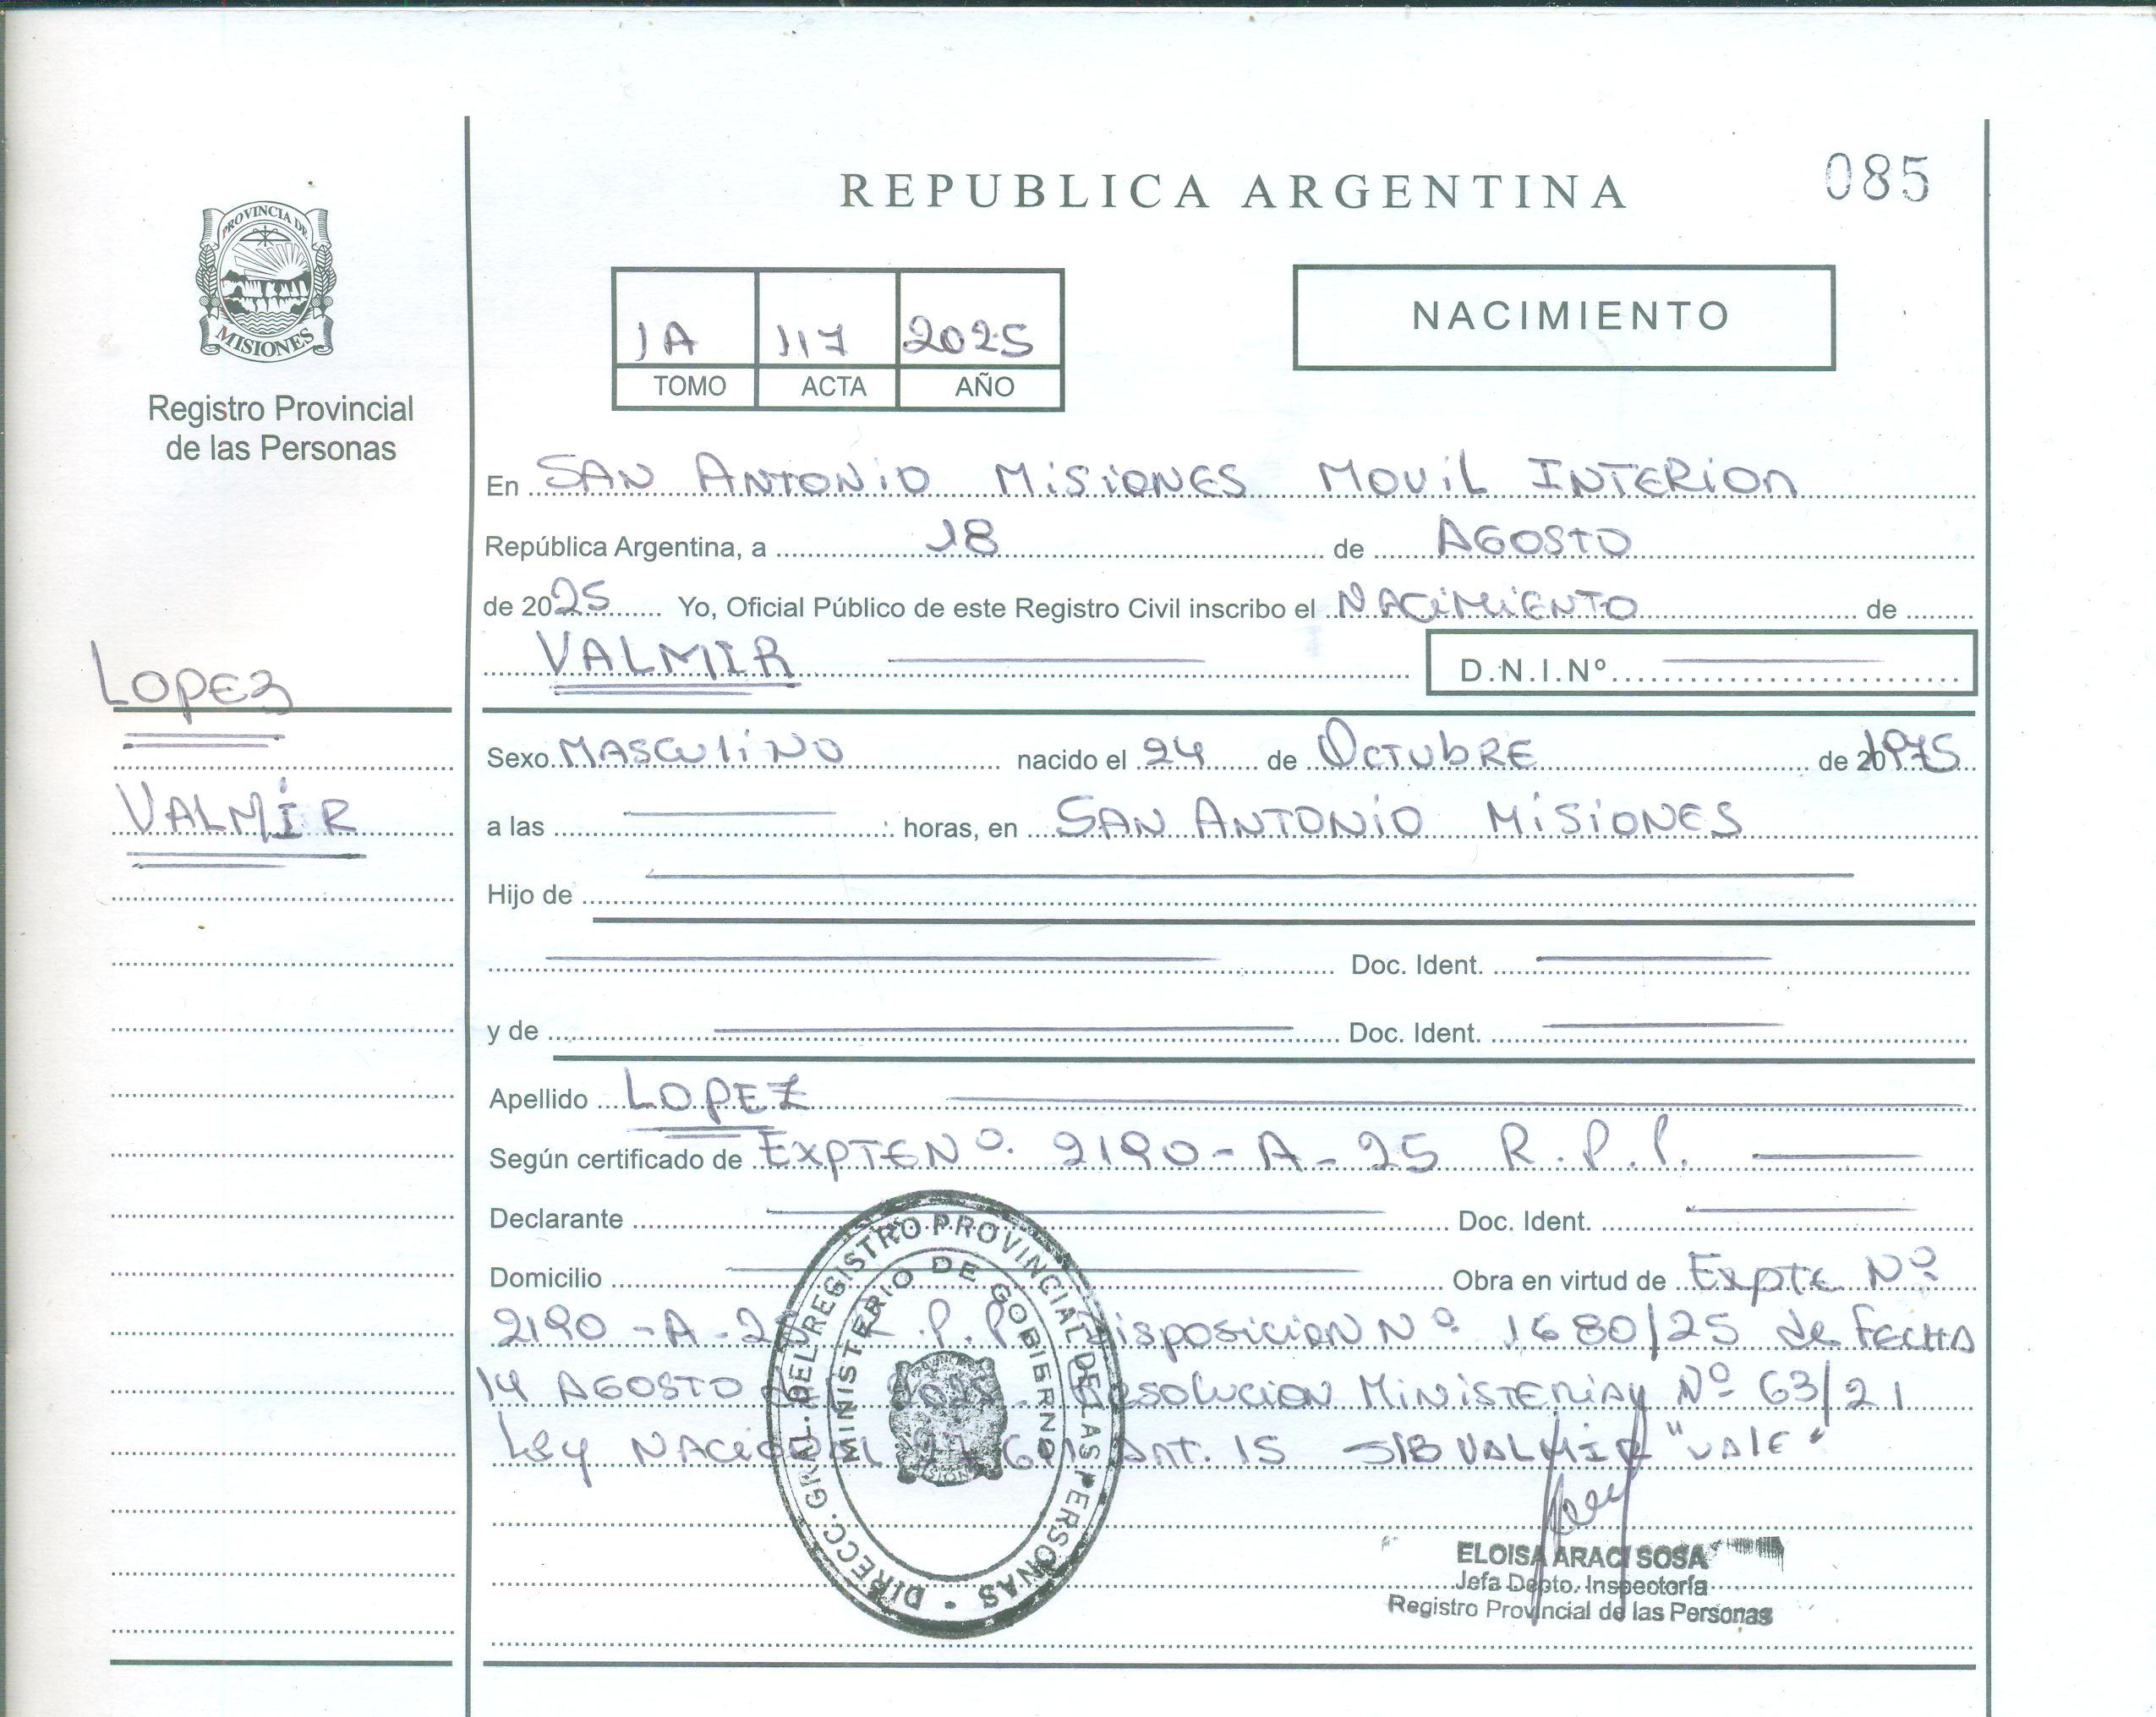 REPUBLICA ARGENTINA
085
PROVINCIA DE
MISIONES
Registro Provincial
de las Personas
1A 117 2025
TOMO ACTA AÑO
NACIMIENTO
En SAN ANTONIO MISIONES MOVIL INTERIOR
República Argentina, a 18 de AGOSTO
de 2025 Yo, Oficial Público de este Registro Civil inscribo el NACIMIENTO de
VALMIR D.N.I.Nº
LOPEZ
VALMIR
Sexo MASCULINO nacido el 24 de OCTUBRE de 1975
a las horas, en SAN ANTONIO MISIONES
Hijo de
Doc. Ident.
y de Doc. Ident.
Apellido LOPEZ
Según certificado de EXPTE Nº. 2190-A-25 R.P.P.
Declarante Doc. Ident.
Domicilio Obra en virtud de Expte Nº
2190-A-25 R.P.P. Disposicion Nº 1680/25 de FECHA
14 AGOSTO 2025. Resolucion MINISTERIAL Nº 63/21
Ley NACIONAL ART. 15 S/B VALMIR "VALE"
DIRECC. GRAL. DEL REGISTRO PROVINCIAL DE LAS PERSONAS
MINISTERIO DE GOBIERNO
ELOISA ARACI SOSA
Jefa Depto. Inspectoría
Registro Provincial de las Personas